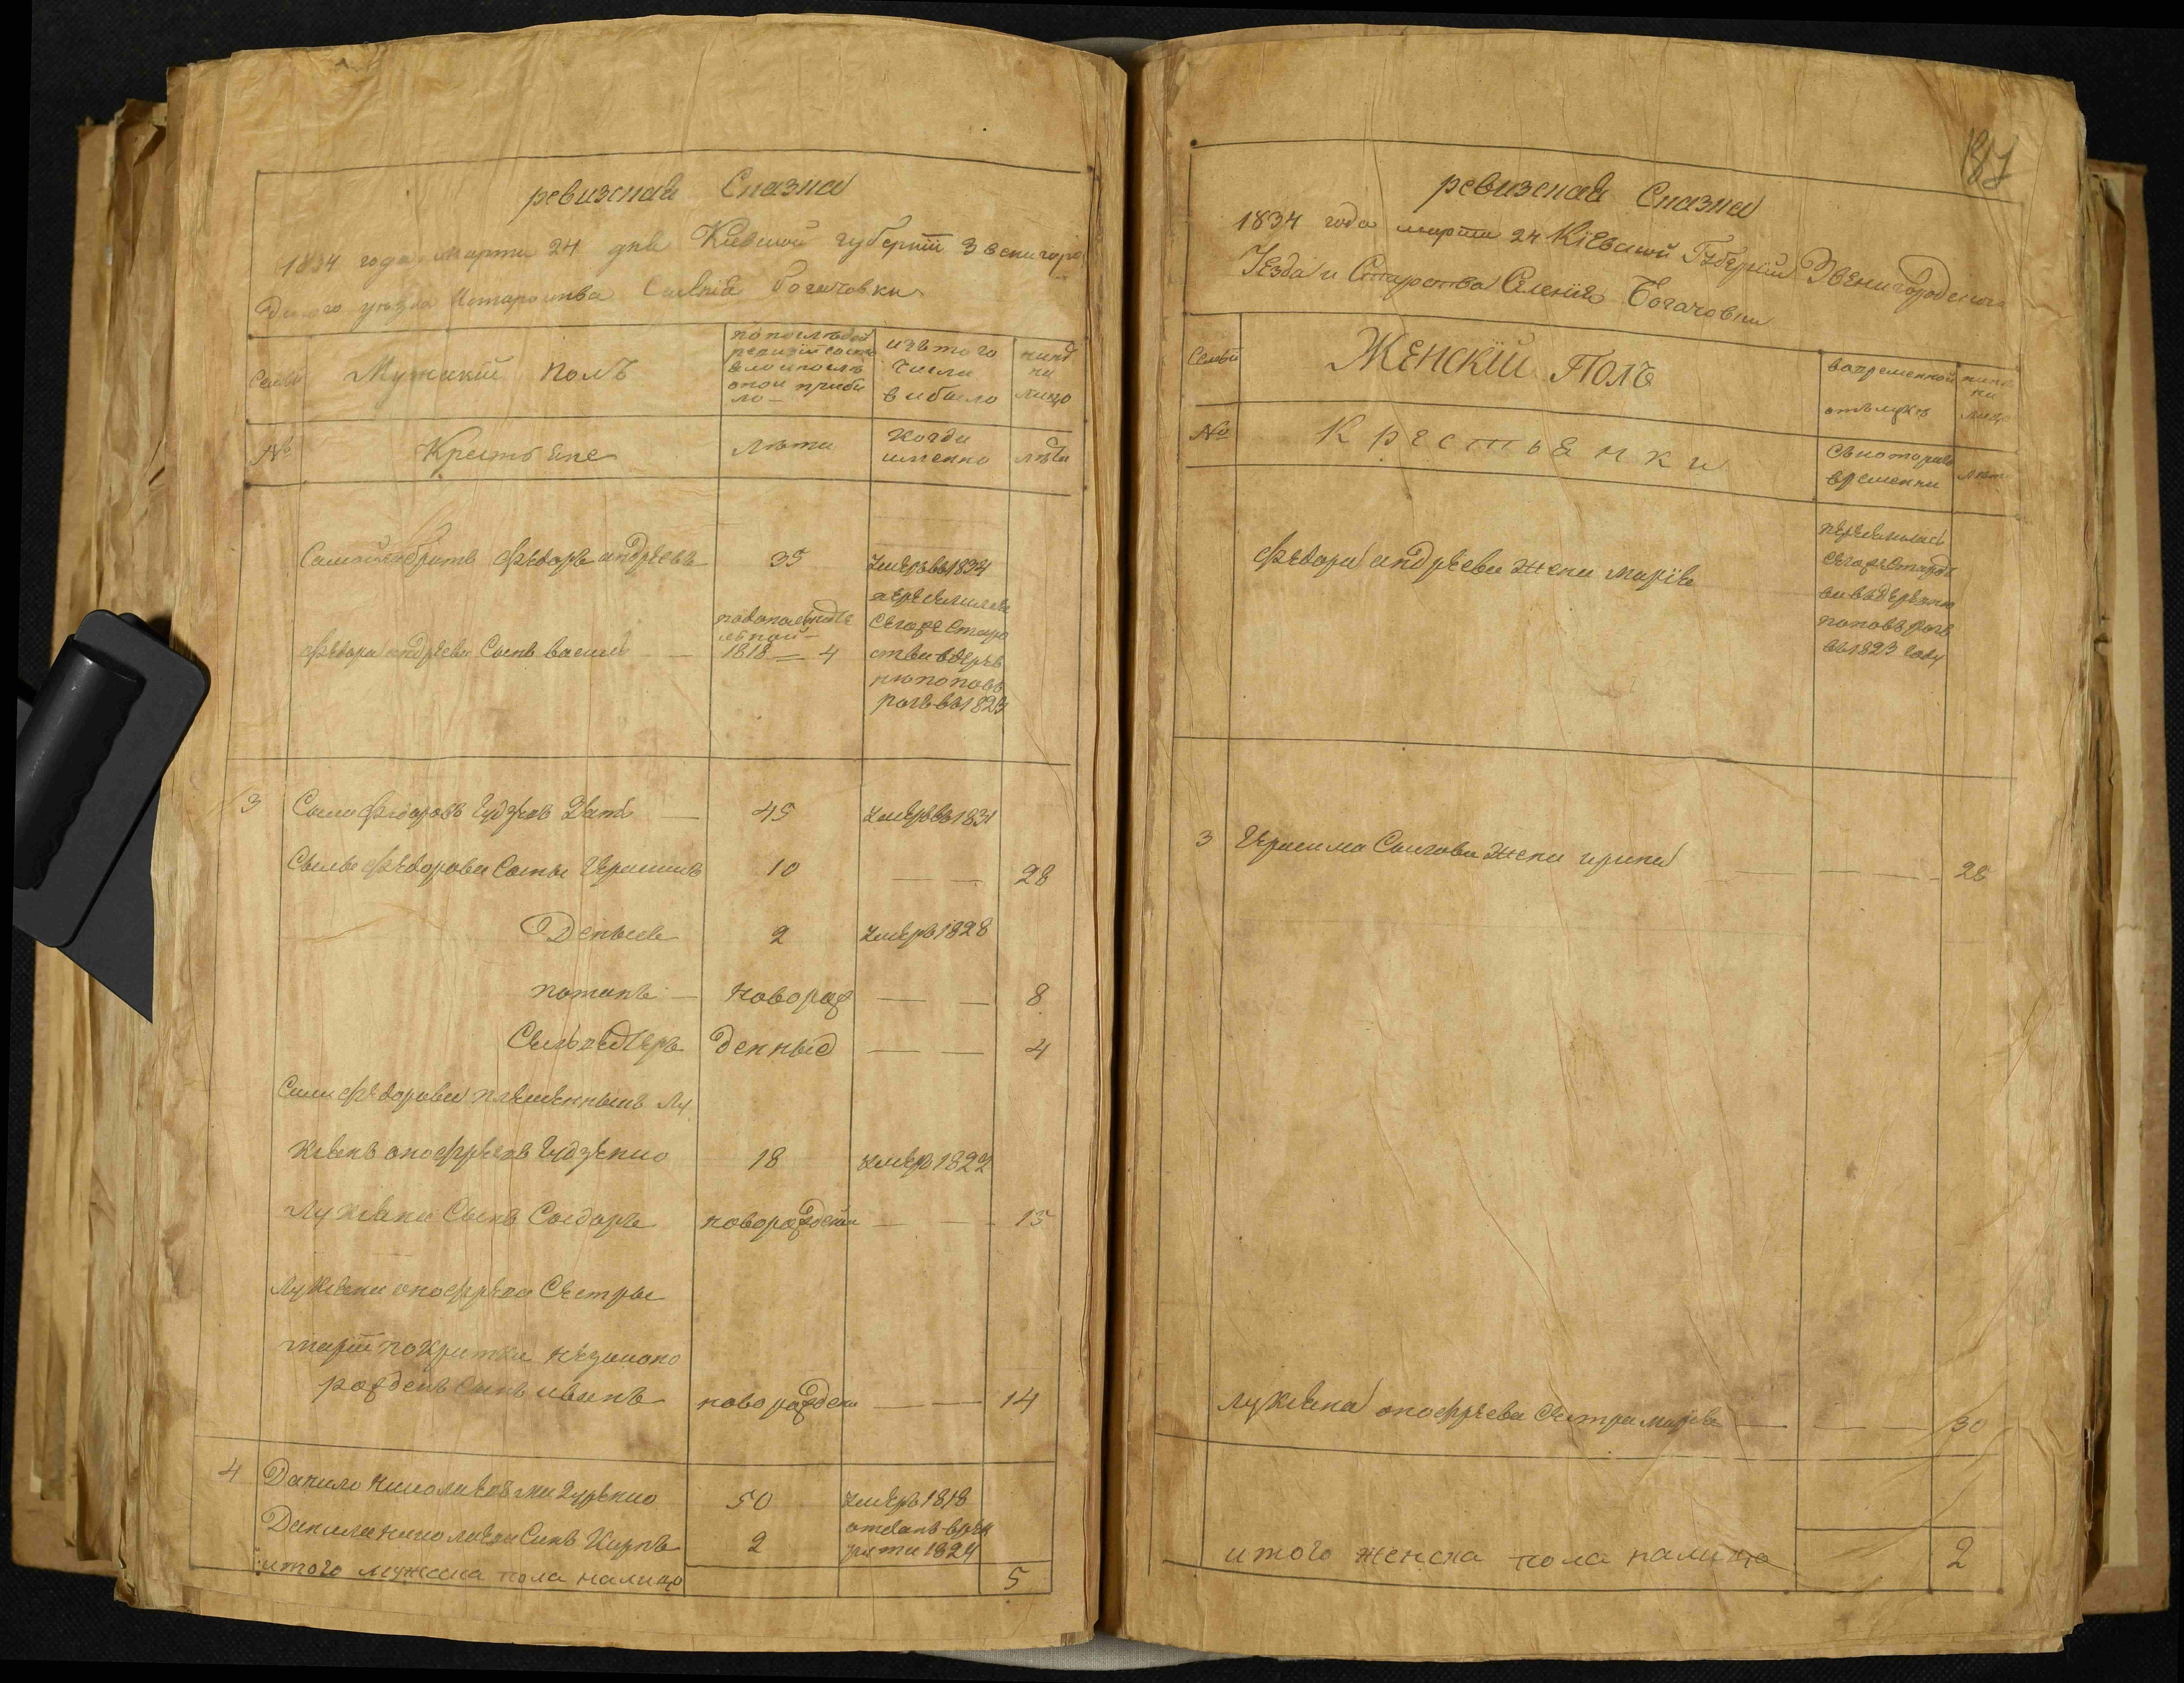 ревизская Сказка
1834 года марта 24 дня Киевской губернїи Звенигоро
дского уѣзда Истароства Селенїя Богачовки
Семьи
Мужикїй полъ
по послѣдней
ревизїи состо
яло и послѣ
оной прибы
ло
изъ того
числа
выбыло
нынѣ
на
лицо
№
Крестьяне
лѣта
когда
именно
лѣта
Самойла братъ Федоръ андрѣевъ 35 Умеръ въ 1834
Федора андрѣева Сынъ василь
1818 — 4
переселился
Сегоже Старо
ства въ дерѣв
ню поповъ
рогъ въ 1823
3 Федоровъ Зять — 45 Умеръ въ 1831
Федорова Сыны Герасимъ 10 — — 28
Денысъ 2 Умеръ 1828
потапъ — Новорож — — 8
денные — — 4
Федорова племенныкъ Лу
кіянъ онофрѣевъ Гудзенко 18 умеръ 1822
Лукіяна Сынъ Сидоръ новорожденъ — — 15
Лукіяна онофрѣева Сестры
марїи покрытки незаконо
рожденъ Сынъ иванъ новорожденъ — — 14
4 Данило Николаевъ 50 Умеръ 1818
Данила николаева Сынъ Карпъ 2 отданъ врѣк
руты 1824
итого мужеска пола налицо 5
187
ревизская Сказка
1834 года марта 24 Кїевской Губернїи Звенигородского
Уезда и Староства Селенїя Богачовки
Семьи
Женскїй Полъ
вовременной
отълучкѣ
нынѣ
на
лицо
№
Крестьянки
Скоторого
времени
лѣта
Федора андрѣева жена марїя
переселилась
Сегоже Старост
ва въ дерѣвню
поповъ рогъ
въ 1823 году
3 Герасима Силова жена ирина — — 28
лукіяна онофрѣева Сестра марїя — — 30
итого женска пола налицо 2